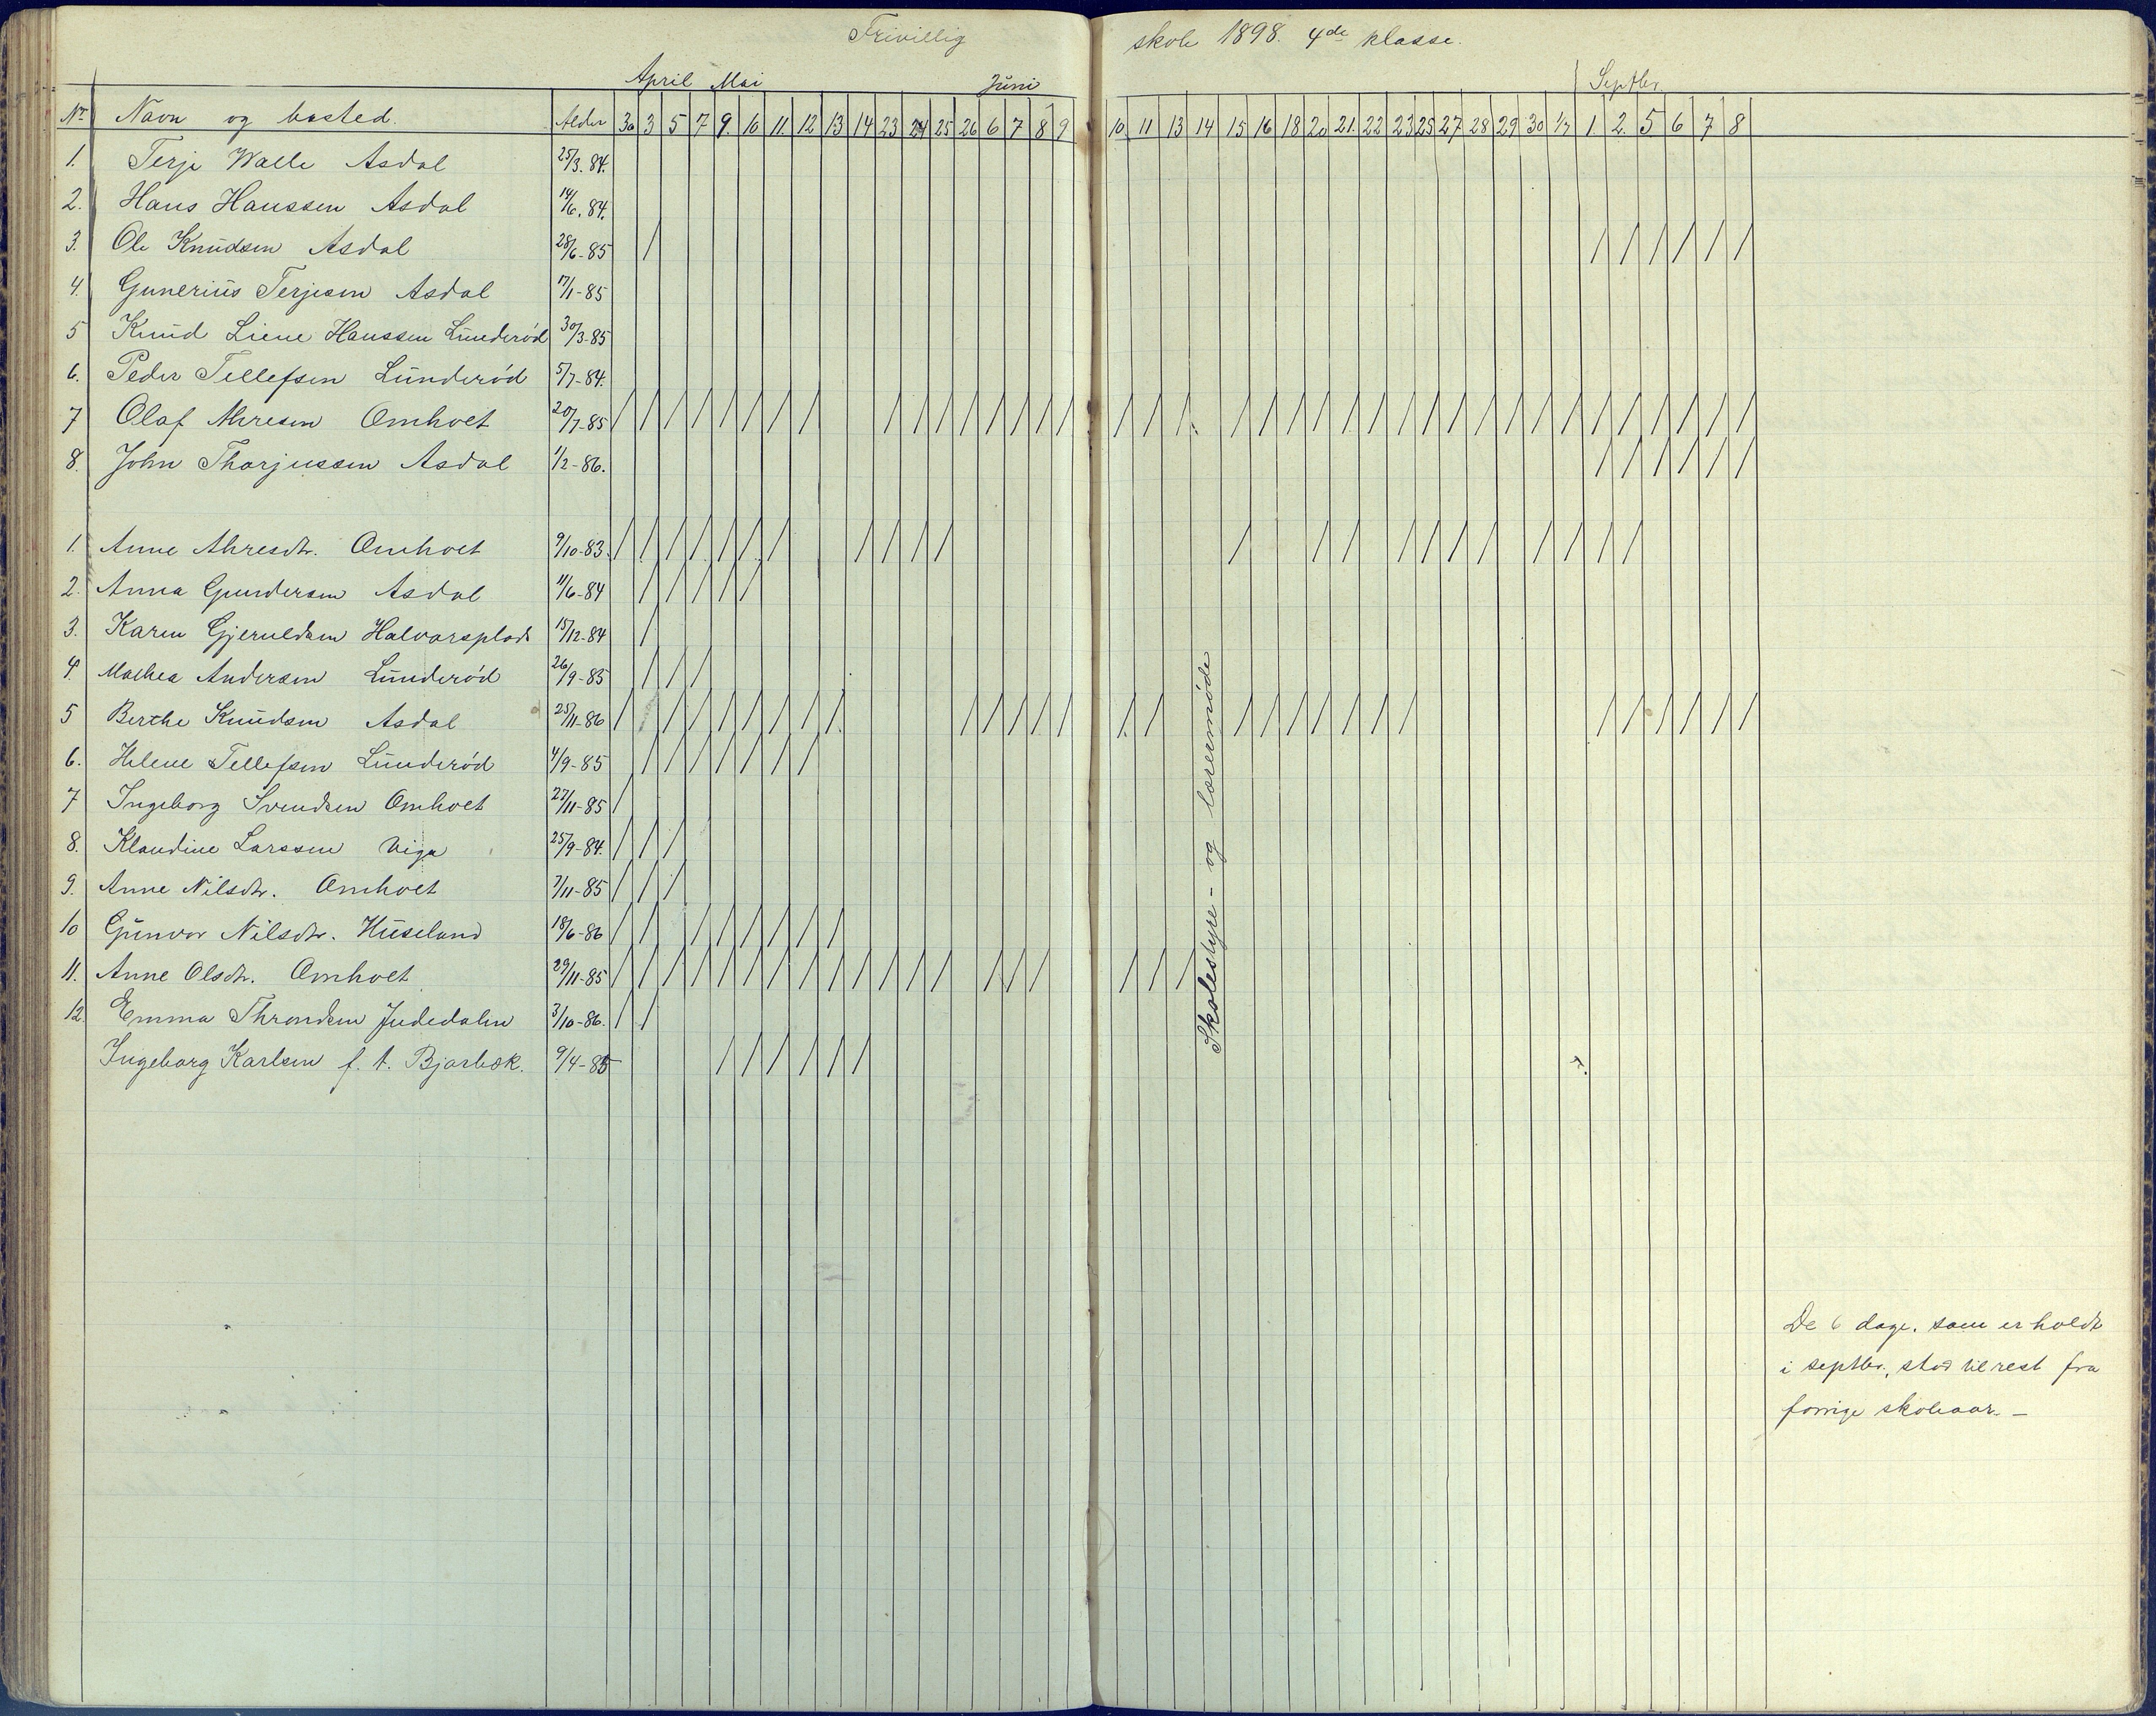 Frivillig skole 1898. 4de klasse.
April Mai Juni Septbr.
Nr. Navn og bosted. Alder 30 3 5 7 9. 10 11. 12 13 14 23 24 25 26 6 7 8 9 10. 11 13 14 15 16 18 20 21. 22 23 25 27 28 29 30 1/7 1. 2. 5 6 7 8
1. Terje Walle Asdal 25/3. 84.
2. Hans Hanssen Asdal 14/6. 84.
3. Ole Knudsen Asdal 28/6-85 / / / / / / /
4. Gunerius Terjesen Asdal 17/1-85
5 Knud Liene Hanssen Lunderød 30/3-85
6. Peder Tellefsen Lunderød 5/7-84.
7 Olaf Ahresen Omholt 20/7-85 / / / / / / / / / / / / / / / / / / / / / / / / / / / / / / / / / / / / / /
8. John Thorjussen Asdal 1/2-86. / / / / / /
1. Anne Ahresdtr. Omholt 9/10-83. / / / / / / / / / / / / / / / / / / / / / /
2. Anna Gundersen Asdal 11/6-84 / / / / /
3. Karen Gjeruldsen Halvorsplads 15/12-84 /
4. Mathea Andersen Lunderød 26/9-85 / / /
5 Berthe Knudsen Asdal 25/11-86 / / / / / / / / / / / / / / / / / / / / / / / / / / / / /
6. Helene Tellefsen Lunderød 4/9-85 / / / / / / /
7 Ingeborg Svendsen Omholt 27/11-85 /
8. Klaudine Larssen Viga 25/9-84. / / /
9. Anne Nilsdtr. Omholt 7/11-85 / / /
10 Gunvor Nilsdtr. Huseland 18/6-86 / / / / / / / /
11. Anne Olsdtr. Omholt 29/11-85 / / / / / / / / / / / / / / / / / / /
12. Emma Throndsen Judedalen 3/10-86. / /
Ingeborg Karlsen f. t. Bjorbæk. 9/4-85 / / / / / /
Skolestyre- og lærermøde
De 6 dage, som er holdt
i septbr., stod til rest fra
forrige skoleaar. –